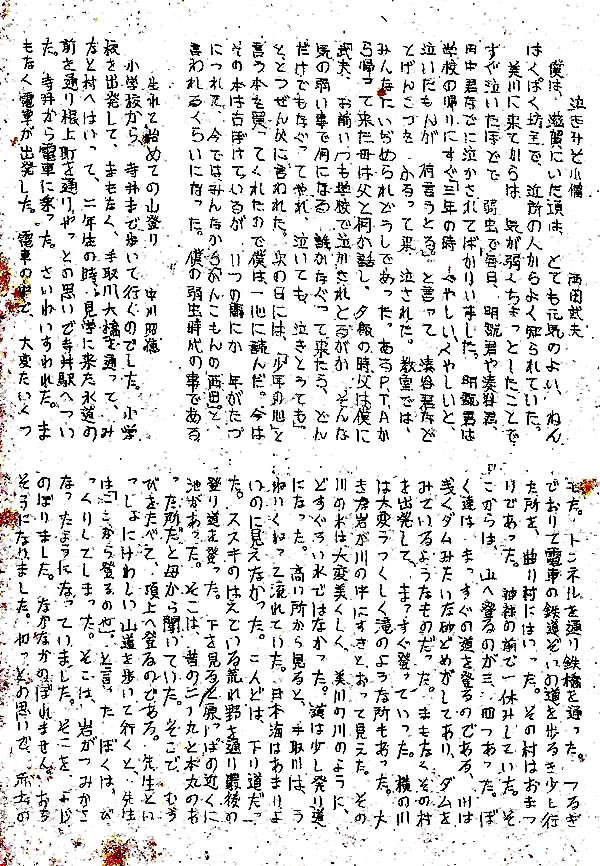 泣きみそ小僧　　西岡武夫
僕は、滋賀にいた頃は、とても元気のよい、ねん
はくぼく坊主で、近所の人からよく知られていた。
美川に来てからは、気が弱く、ちょっとしたことで
すぐ泣いたほどで、弱虫で毎日、明観君や湊谷君、
田中君などに泣かされてばかりいました。明観君は
学校の帰りにすぐ「三年の時、くやしい、くやしいと、
泣いたもんが、何言うとる。」と言って、湊谷君など
とげんこつを、ふるって来、泣された。教室では、
みんなにいじめられどうしであった。あるP.T.Aか
ら帰って来た母は父と何か話し、夕飯の時、父は僕に
「武夫、お前いつも学校で泣かされとるがか、そんな
気の弱い事で何になる、誰かなぐって来たら、どん
だけでもなぐってやれ、泣いても、泣きとうても」
ととつぜん父に言われた。次の日には、「少年の心」と
言う本を買ってくれたので僕は一心に読んだ。今は
その本は古ぼけているが、いつの間にか、年がたつ
につれて、今ではみんなからがんこもんの西岡と、
言われるくらいになった。僕の弱虫時代の事である
生れて始めての山登り　　中川昭徳
小学校から、寺井まで歩いて行くのでした。小学
校を出発して、まもなく、手取川大橋を通って、み
なと村へはいって、二年生の時、見学に来た水道の
前を通り根上町を通りやっとの思いで寺井駅へつい
た。寺井から電車に乗った。さいわいすわれた。ま
もなく電車が出発した。電車の中で、大変たいくつ
した。トンネルを通り鉄橋を通った。つるぎ
でおりて電車の鉄道ぞいの道を歩るき少し行
た所を、曲り村にはいった。その村はおまつ
りであった。神社の前で一休みしていた。そ
こからは、山へ登るのが三、四つあった。ぼ
く達は、まっすぐの道を登るのである。川は
浅くダムみたいな砂どめがしてあり、ダムを
みているようなものだった。まもなくその村
を出発して、まっすぐ登っていった。横の川
は大変うつくしく滝のような所もあった。大
きな岩が川の中にすきとおって見えた。その
川の水は大変美くしく、美川の川のように、
どすぐろい水ではなかった。道は少し登り道
になった。高い所から見ると、手取川は、う
ねりくねって流れていた。日本海はあまりよ
いのに見えなかった。こんどは、下り道だっ
た。ススキのはえている荒れ野を通り最後の
登り道を登った。下を見ると原っぱの近くに
池があった。そこは、昔の二ノ丸と本丸のあ
った所だと母から聞いていた。そこで、むす
びをたべて、頂上へ登るのである。先生とい
っしょにけわしい山道を歩いて行くと、先生
は「ここから登るのや。」と言った。ぼくは、び
っくりしてしまった。そこは、岩がつみかさ
なったようになっていました。そこを、よじ
のぼりました。なかなかのぼれません。おち
そうになりました。やっとの思いで、